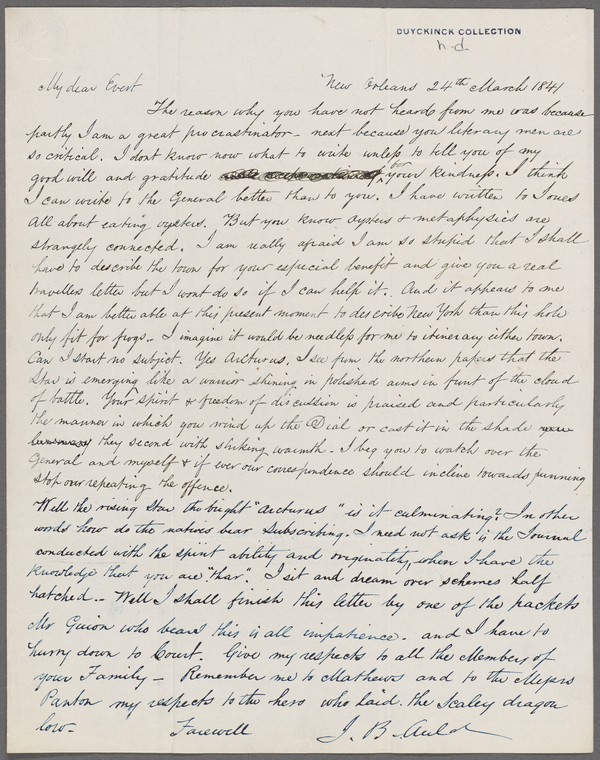 DUYCKINCK COLLECTION
n-d-
My dear Evert New Orleans 24th March 1841
The reason why you have not heard from me was because
partly I am a great procrastinator - next because you literary men are
so critical. I dont know now what to write unless to tell you of my
good will and gratitude for your kindness. I think
I can write to the General better than to you. I have written to Jones
all about eating oysters. But you know oysters & metaphysics are
strangely connected. I am really afraid I am so stupid that I shall
have to describe the town for your especial benefit and give you a real
travellers letter but I wont do so if I can help it. And it appears to me
that I am better able at this present moment to describe New York than this hole
only fit for frogs - I imagine it would be needless for me to itinerary either town.
Can I start no subject. Yes Arcturus. I see from the northern papers that the
Star is emerging like a warior shining in polished arms in front of the cloud
of battle. Your spirit & freedom of discussion is praised and particularly
the manner in which you wind up the Dial or cast it in the shade
they second with striking warmth - I beg you to watch over the
General and myself & if ever our correspondence should incline towards punning
stop our repeating the offence.
Well the rising Star the bright "Arcturus" is it culminating? In other
words how do the natives bear Subscribing. I need not ask is the Journal
conducted with the spirit ability and originality, when I have the
knowledge that you are "thar". I sit and dream over schemes half
hatched -- Well I shall finish this letter by one of the packets
Mr Guion who bears this is all impatience - and I have to
hurry down to Court. Give my respects to all the Members of
your Family - Remember me to Mathews and to the Messrs
Panton my respects to the hero who laid the Scaley dragon
low - Farewell J. B. Auld